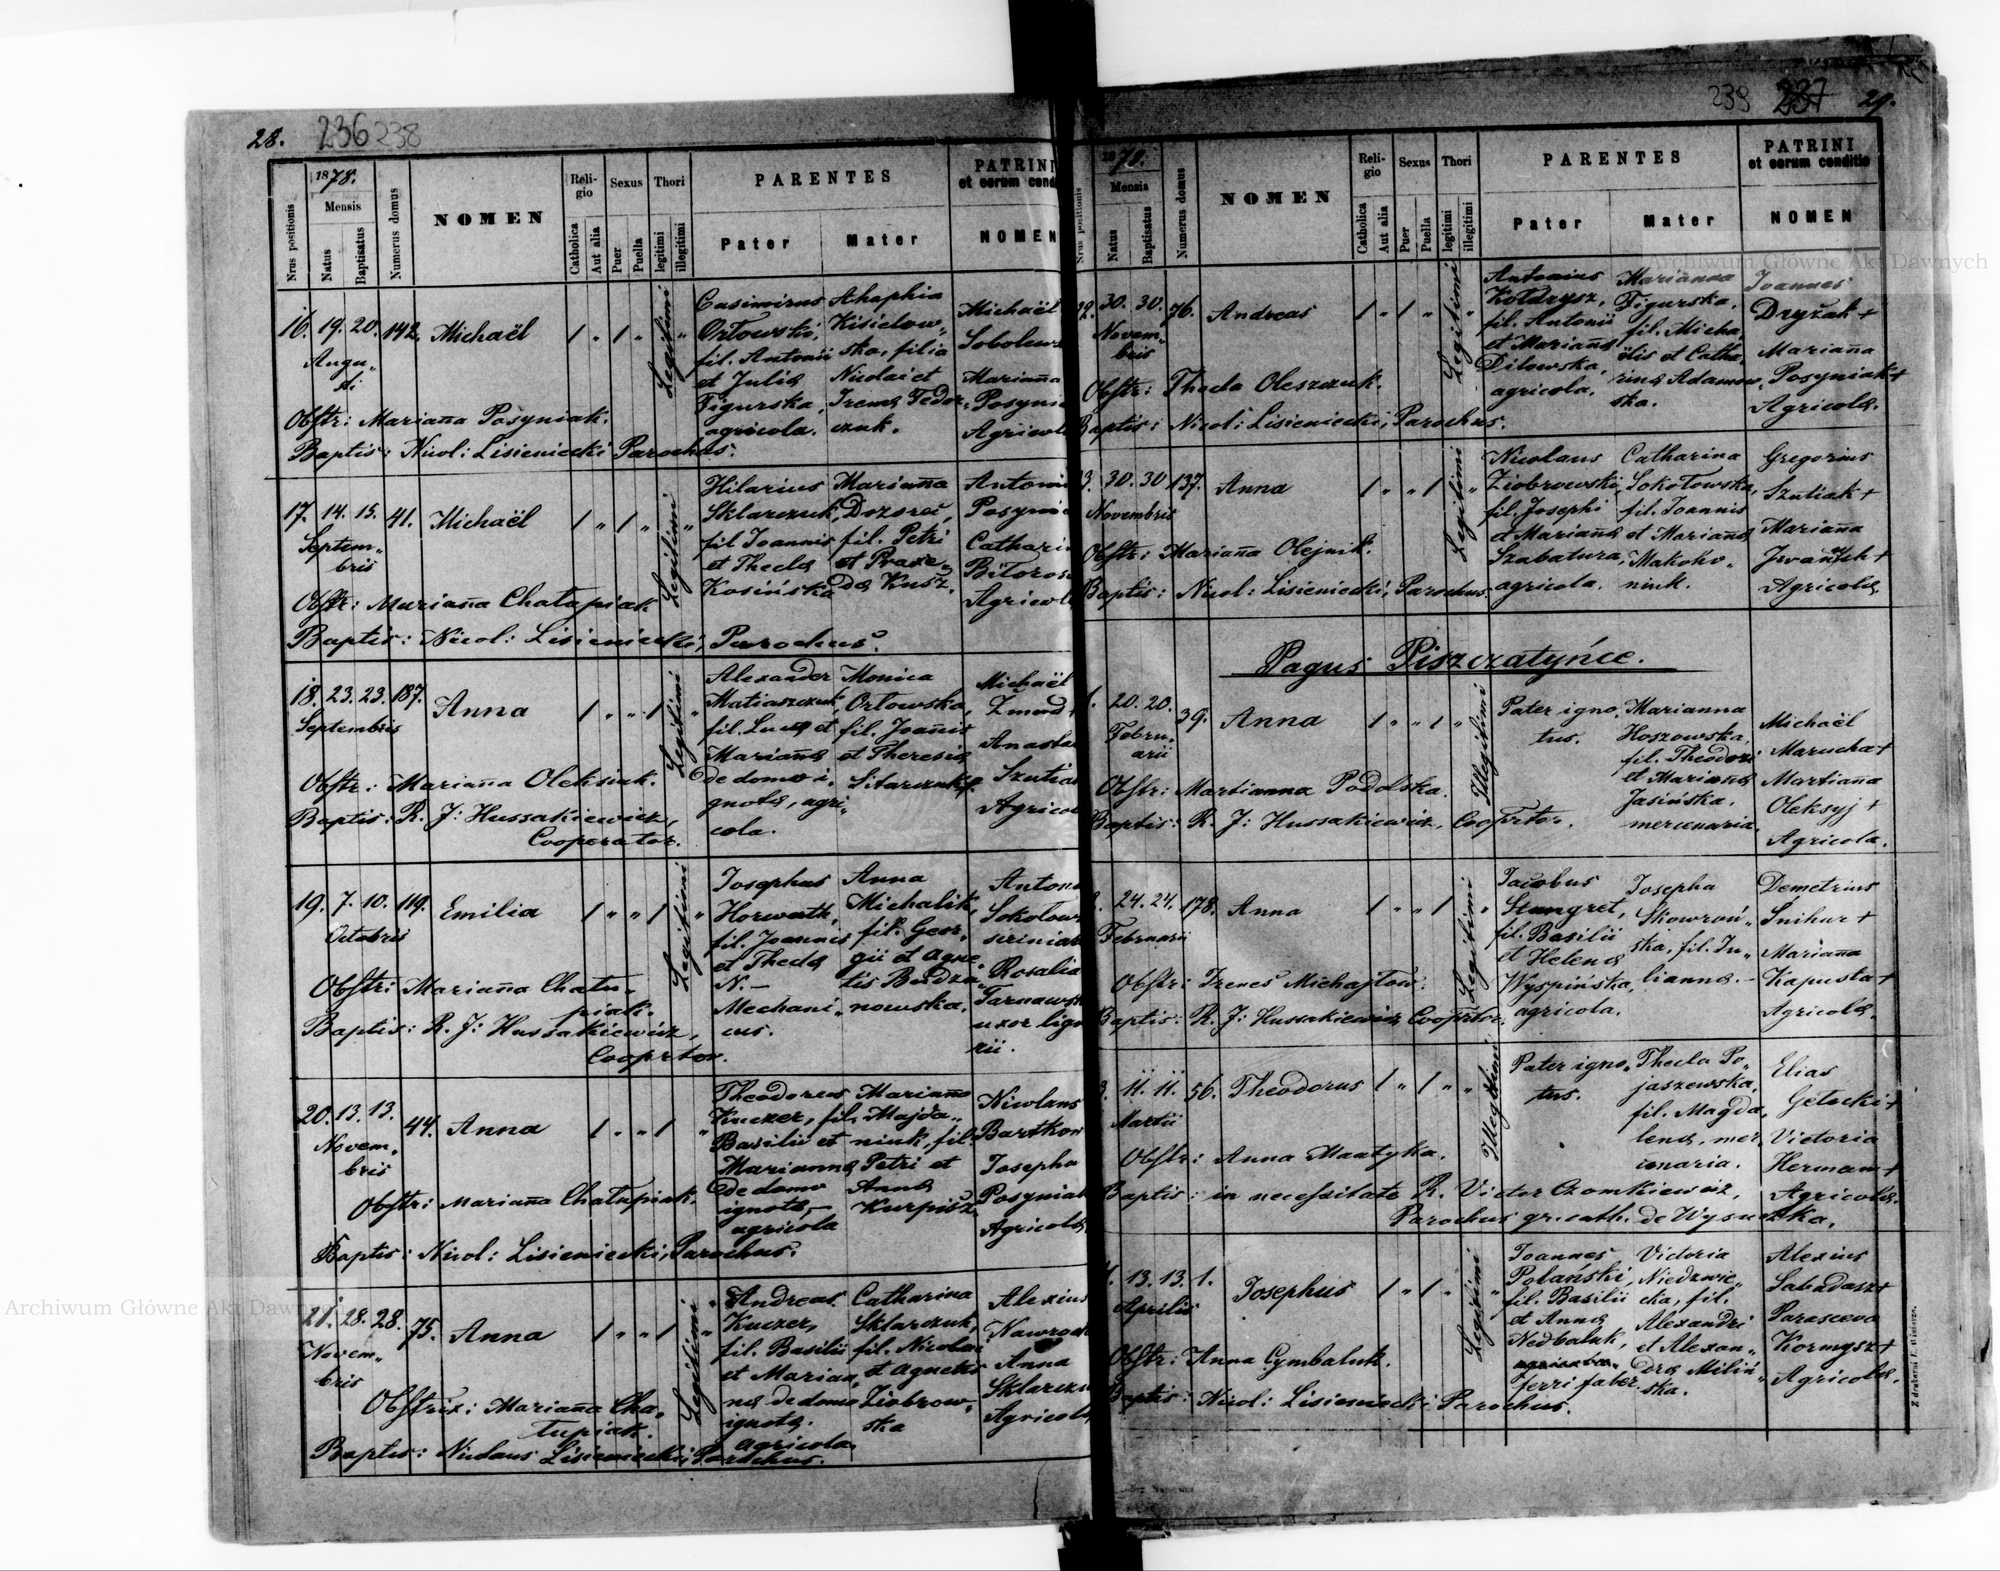 28. 236 238
1878.
Nrus positionis
Mensis
Natus
Baptisatus
Numerus domus
NOMEN
Religio
Catholica
Aut alia
Sexus
Puer
Puella
Thori
legitimi
illegitimi
PARENTES
Pater
Mater
PATRINI
et eorum condi
NOMEN
16. 19. 20. 142. Michaël 1 „ 1 „ Legitimi „
Augu„
sti
Casimirus
Orłowski,
fil. Antonii
et Julia
Figurska,
agricola.
Ahaphia
Kisielow„
ska, filia
Nicolai et
Irena Fedor„
czuk.
Michaël
Sobolews
Marianna
Posynia
Agricol
Obstr: Marianna Posyniak.
Baptis: Nicol: Lisieniecki Parochus.
17. 14. 15. 41. Michaël 1 „ 1 „ Legitimi „
Septem„
bris
Hilarius
Sklarczuk,
fil Joannis
et Thecla
Kosińska
Marianna
Dozorec,
fil. Petri
et Praxe„
da Kusz.
Antoni
Posynia
Cathari
Agricol
Obstr: Marianna Chałapiak
Baptis: Nicol: Lisieniecki, Parochus.
18. 23. 23. 187. Anna 1 „ „ 1 Legitimi „
Septembris
Alexander
Matiaszczuk,
fil. Luca et
Marianna
de domo i„
gnota, agri„
cola.
Monica
Orłowska,
fil. Joannis
et Theresia
Sitarczuk.
Michaël
Żmud +
Anasta
Szutia
Agricol
Obstr: Marianna Oleksiak.
Baptis: R. J: Hussakiewicz,
Cooperator.
19. 7. 10. 119. Emilia 1 „ „ 1 Legitimi „
Octobris
Josephus
Horwath,
fil. Joannis
et Thecla
N. –
Mechani„
cus.
Anna
Michalik,
fil. Geor„
gii et Agne„
tis Budza„
nowska.
Antoni
Sokołow
Rosalia
Tarnaws
uxor lign
rii.
Obstr: Marianna Chału„
piak.
Baptis: R. J: Hussakiewicz,
Cooprtor.
20. 13. 13. 44. Anna 1 „ „ 1 „
Novem„
bris
Theodorus
Kuczer, fil.
Basilii et
Marianna
de domo
ignota,
agricola
Marianna
Majda„
niuk, fil.
Petri et
Anna
Kurpisz.
Nicolaus
Bartkow
Josepha
Posyniak
Agricola
Obstr: Marianna Chałupiak.
Baptis: Nicol: Lisieniecki, Parochus.
21. 28. 28. 75. Anna 1 „ „ 1 Legitimi „
Novem„
bris
Andreas
Kuczer,
fil. Basilii
et Marian„
na de domo
ignota.
agricola.
Catharina
Sklarczuk,
fil. Nicolai
et Agnetis
Ziobrow„
ska
Alexius
Nawrock
Anna
Sklarczu
Agricola
Obstrix: Marianna Cha„
łupiak.
Baptis: Nicolaus Lisieniecki, Parochus.
239 237 29.
1878.
Nrus positionis
Mensis
Natus
Baptisatus
Numerus domus
NOMEN
Religio
Catholica
Aut alia
Sexus
Puer
Puella
Thori
legitimi
illegitimi
PARENTES
Pater
Mater
PATRINI
et eorum conditio
NOMEN
2. 30. 30. 76. Andreas 1 „ 1 „ Legitimi „
Novem„
bris
Antonius
Kołdrysz,
fil. Antonii
et Marianna
Dilowska,
agricola.
Marianna
Figurska,
fil. Micha„
ëlis et Catha„
rina Adamow„
ska.
Joannes
Dryżak +
Marianna
Posyniak +
Agricola.
Obstr: Thecla Oleszczuk.
Baptis: Nicol: Lisieniecki, Parochus.
3. 30. 30 137. Anna 1 „ „ 1 Legitimi „
Novembris
Nicolaus
Ziobrowski,
fil. Josephi
et Marianna
Szabatura,
agricola.
Catharina
Sokołowska,
fil. Joannis
et Marianna
Makoho„
niuk.
Gregorius
Szutiak +
Marianna
Agricola.
Obstr: Marianna Olejnik.
Baptis: Nicol: Lisieniecki, Parochus.
Pagus Piszczatyńce.
1. 20. 20. 39. Anna 1 „ „ 1 „ Illegitimi
Febru„
arii
Pater igno„
tus.
Marianna
Hoszowska,
fil. Theodori
et Marianna
Jasińska.
mercenaria.
Michaël
Marucha +
Martianna
Oleksyj +
Agricola.
Obstr: Martianna Podolska.
Baptis: R. J: Hussakiewicz, Cooprtor.
2. 24. 24. 178. Anna 1 „ „ 1 Legitimi „
Februarii
Jacobus
Stangret,
fil. Basilii
et Helena
Wyspińska,
agricola.
Josepha
Skowroń„
ska, fil. Ju„
lianna. –
Demetrius
Snihur +
Marianna
Kapusta +
Agricola.
Obstr: Irenes Michajłow.
Baptis: R. J: Hussakiewicz Cooprtor.
3. 11. 11. 56. Theodorus 1 „ 1 „ „ Illegitimi
Martii
Pater igno„
tus.
Thecla Po„
jaszewska,
fil. Magda„
lena, mer„
cenaria.
Elias
Gełecki +
Victoria
Herman +
Agricola.
Obstr: Anna Mantyka.
Baptis: in necessitate R. Victor Czomkiewicz,
Parochus gr. cath. de Wysuczka.
4. 13. 13. 1. Josephus 1 „ 1 „ Legitimi „
Aprilis
Joannes
Polański,
fil. Basilii
et Anna
Nedbaluk,
ferri faber.
Victoria
Niedzwie„
cka, fil.
Alexandri
et Alexan„
dra Miliń„
ska.
Alexius
Sabadasz +
Parasceva
Kormysz +
Agricola.
Obstr: Anna Cymbaluk.
Baptis: Nicol: Lisieniecki Parochus.
Archiwum Główne Akt Dawnych
Archiwum Główne Akt Dawnych